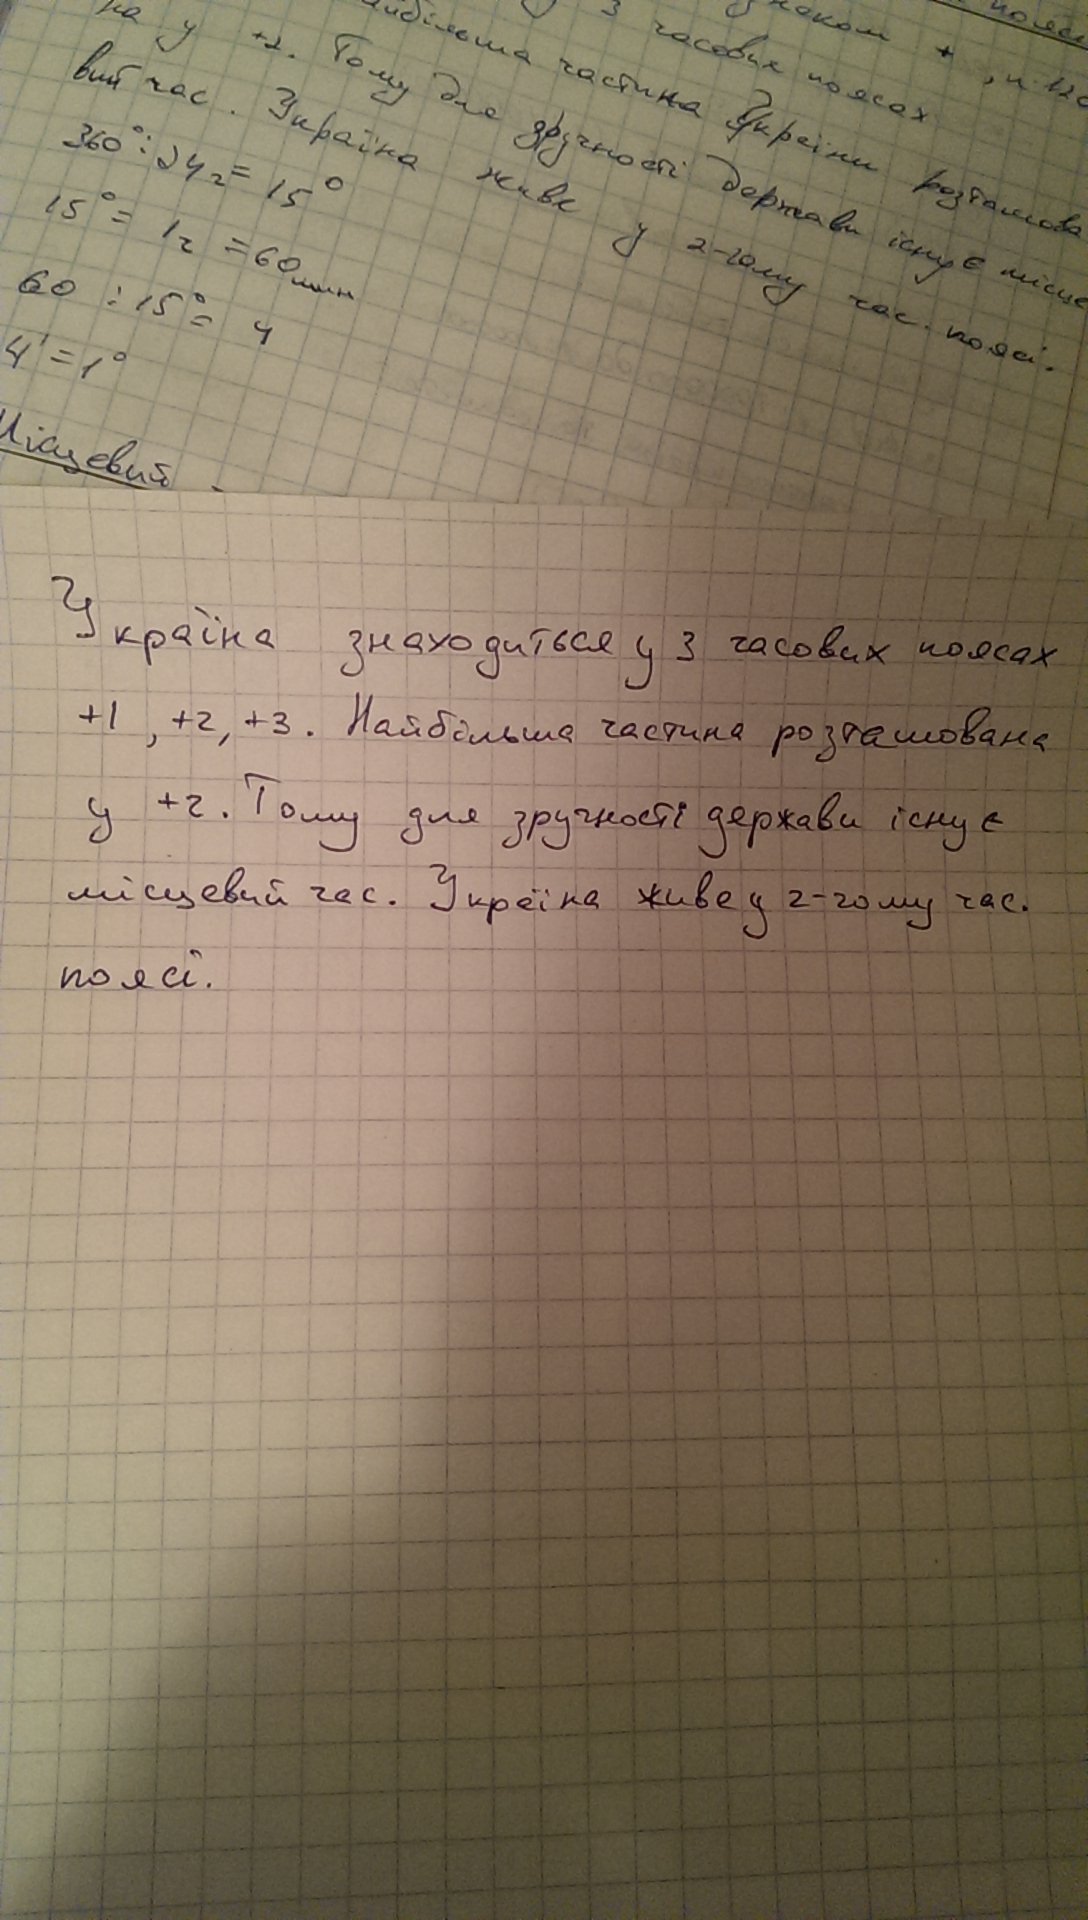 знаком +
у 3 часових поясах
найбільша частина України розташова
на у +2. Тому для зручності держави існує місце
вий час. Україна живе у 2-гому час. поясі.
360° : 24г = 15°
15° = 1г = 60мин
60 : 15° = 4
4' = 1°
Місцевий
Україна знаходиться у 3 часових поясах
+1, +2, +3. Найбільша частина розташована
у +2. Тому для зручності держави існує
місцевий час. Україна живе у 2-гому час.
поясі.